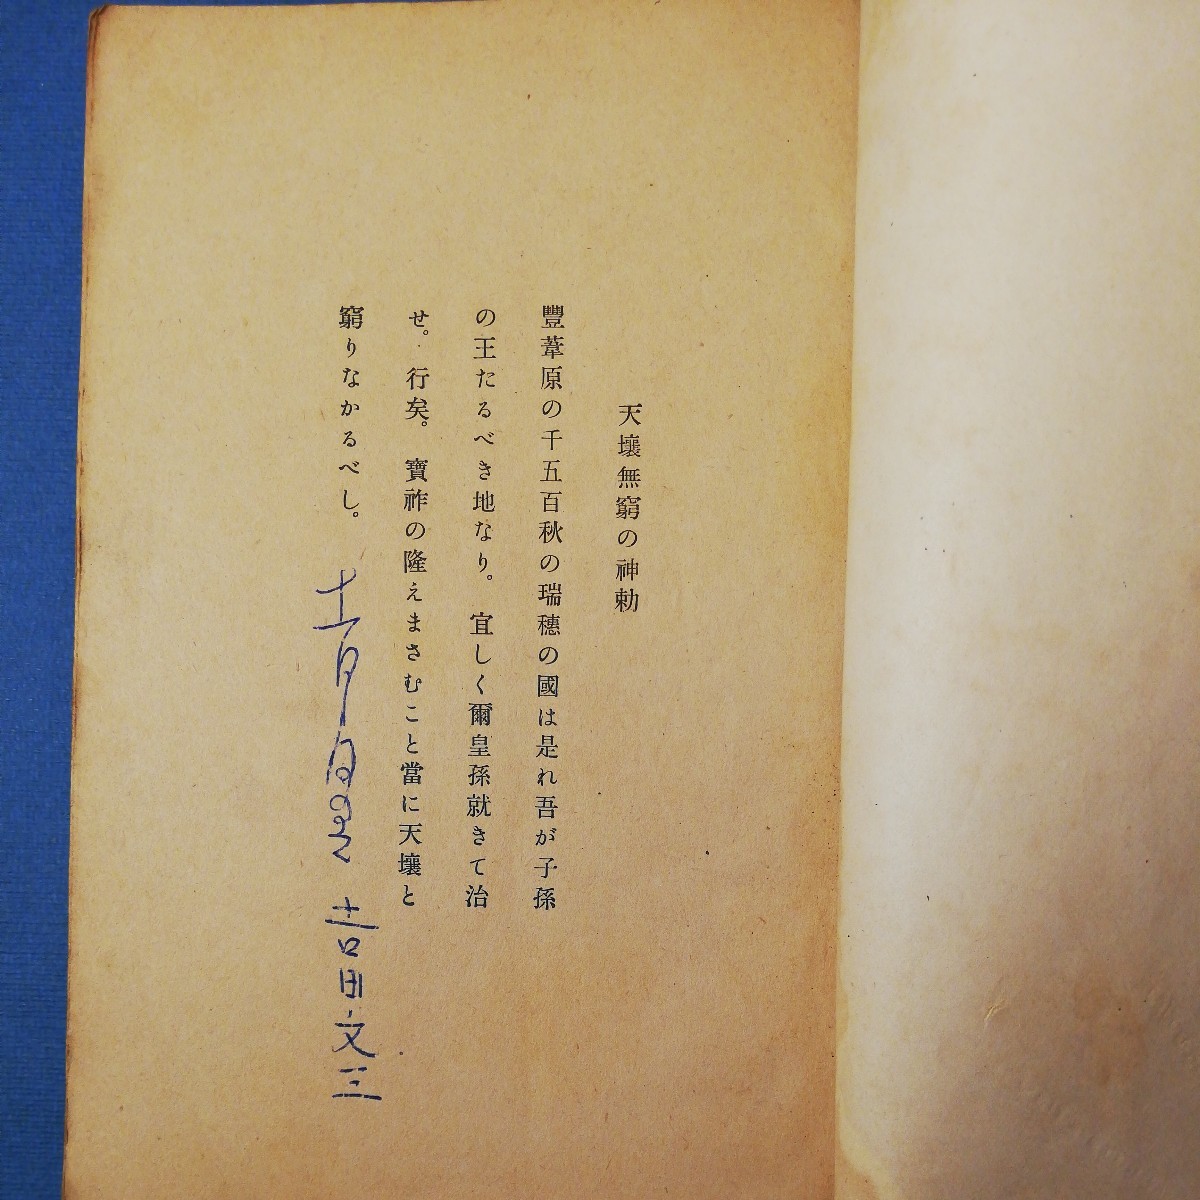 天壤無窮の神勅
豐葦原の千五百秋の瑞穗の國は是れ吾が子孫
の王たるべき地なり。宜しく爾皇孫就きて治
せ。行矣。寶祚の隆えまさむこと當に天壤と
窮りなかるべし。
吉田文三